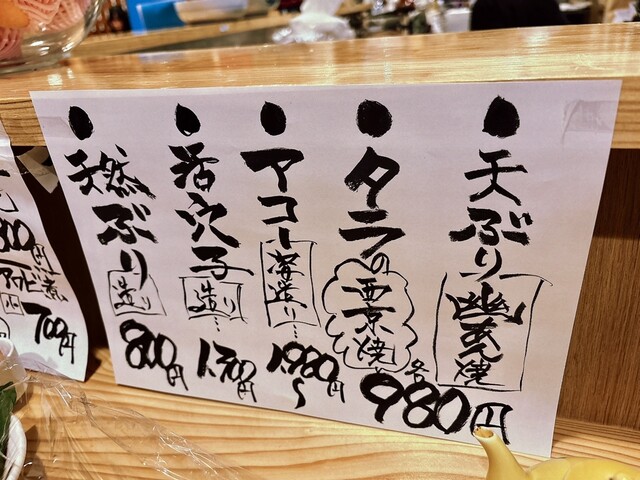 ●天ぶり幽あん焼
●タラの西京焼
各980円
●アコー
薄造り…
1,980円〜
●活穴子
造り…
1,700円
●天然ぶり
造り
800円
800円
アワビ煮
700円